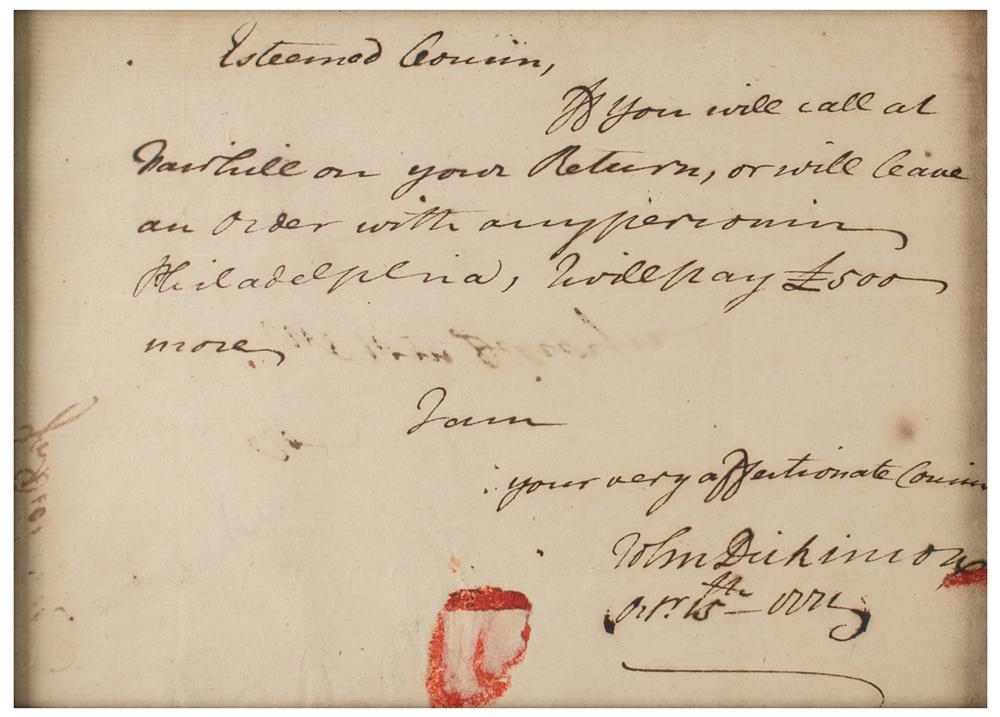 Esteemed Cousin,
If You will call at
Fairhill on your Return, or will leave
an Order with any person in
Philadelphia, I will pay £500
more,
I am
your very affectionate Cousin
John Dickinson
Octr. 15th